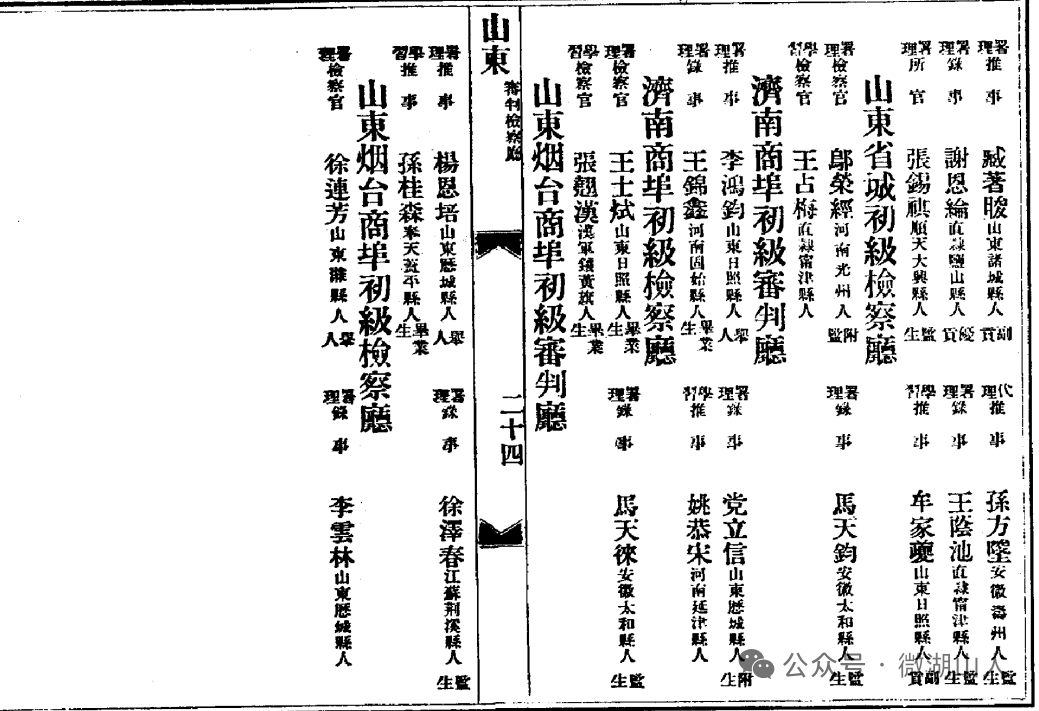 署理推事 臧著晙 山東諸城縣人 副貢 代理推事 孫方墜 安徽壽州人 監生
署理錄事 謝恩綸 直隷鹽山縣人 優貢 署理錄事 王蔭池 直隷甯津縣人 監生
署理所官 張錫祺 順天大興縣人 監生 學習推事 牟家夔 山東日照縣人 副貢
山東省城初級檢察廳
署理檢察官 鄔榮經 河南光州人 附監 署理錄事 馬天鈞 安徽太和縣人 監生
學習檢察官 王占梅 直隷甯津縣人
濟南商埠初級審判廳
署理推事 李鴻鈞 山東日照縣人 舉人 署理錄事 党立信 山東歷城縣人 附生
署理錄事 王錦鑫 河南固始縣人 畢業生 學習推事 姚恭宋 河南延津縣人
濟南商埠初級檢察廳
署理檢察官 王士栻 山東日照縣人 畢業生 署理錄事 馬天徠 安徽太和縣人 監生
學習檢察官 張翹漢 漢軍鑲黃旗人 畢業生
山東烟台商埠初級審判廳
山東 審判檢察廳 二十四
署理推事 楊恩培 山東歷城縣人 舉人 署理錄事 徐澤春 江蘇荆溪縣人 監生
學習推事 孫桂森 奉天蓋平縣人 畢業生
山東烟台商埠初級檢察廳
署理檢察官 徐連芳 山東濰縣人 舉人 署理錄事 李雲林 山東歷城縣人
公众号·微湖山人